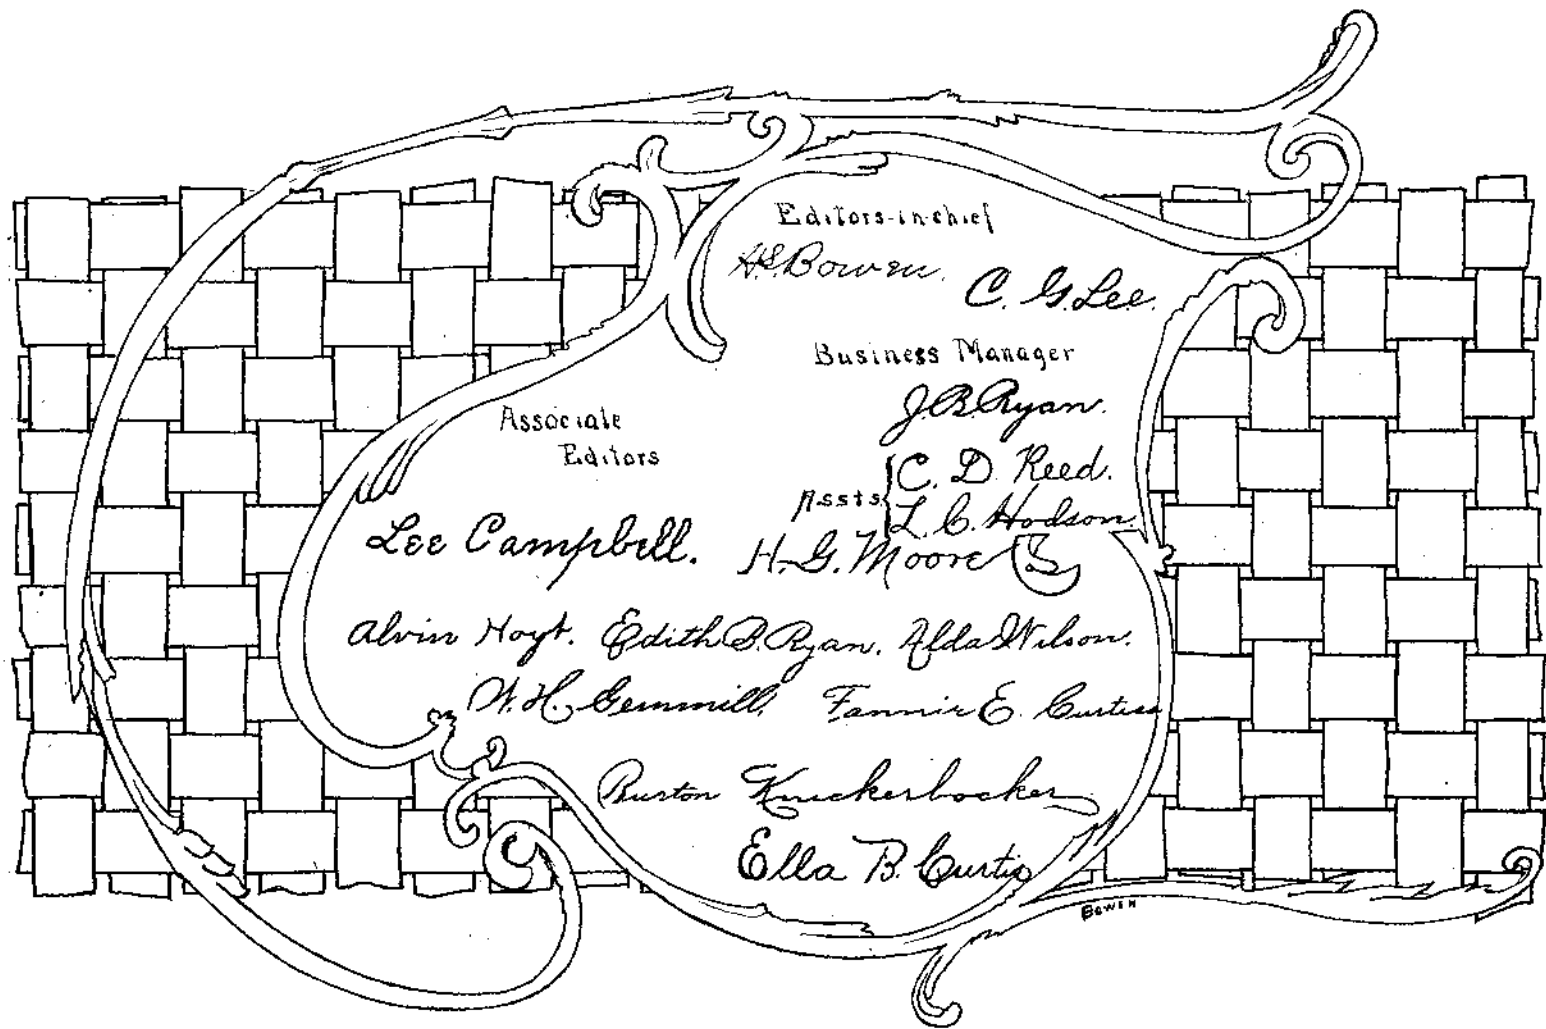 Editors-in-chief
H.S. Bowen.
C. G. Lee.
Business Manager
J. B. Ryan.
Associate
Editors
Assts
C. D. Reed.
L. C. Hodson.
Lee Campbell. H. G. Moore
Alvin Hoyt. Edith B. Ryan. Alda Wilson.
W. H. Gemmill. Fannie E. Curtiss
Burton Knickerbocker
Ella B. Curtis
BOWEN